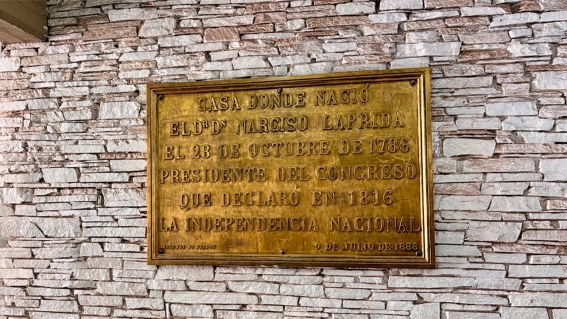 CASA DONDE NACIÓ
EL Dᴿ Dᴺ NARCISO LAPRIDA
EL 28 DE OCTUBRE DE 1786
PRESIDENTE DEL CONGRESO
QUE DECLARO EN 1816
LA INDEPENDENCIA NACIONAL
9 DE JULIO DE 1888